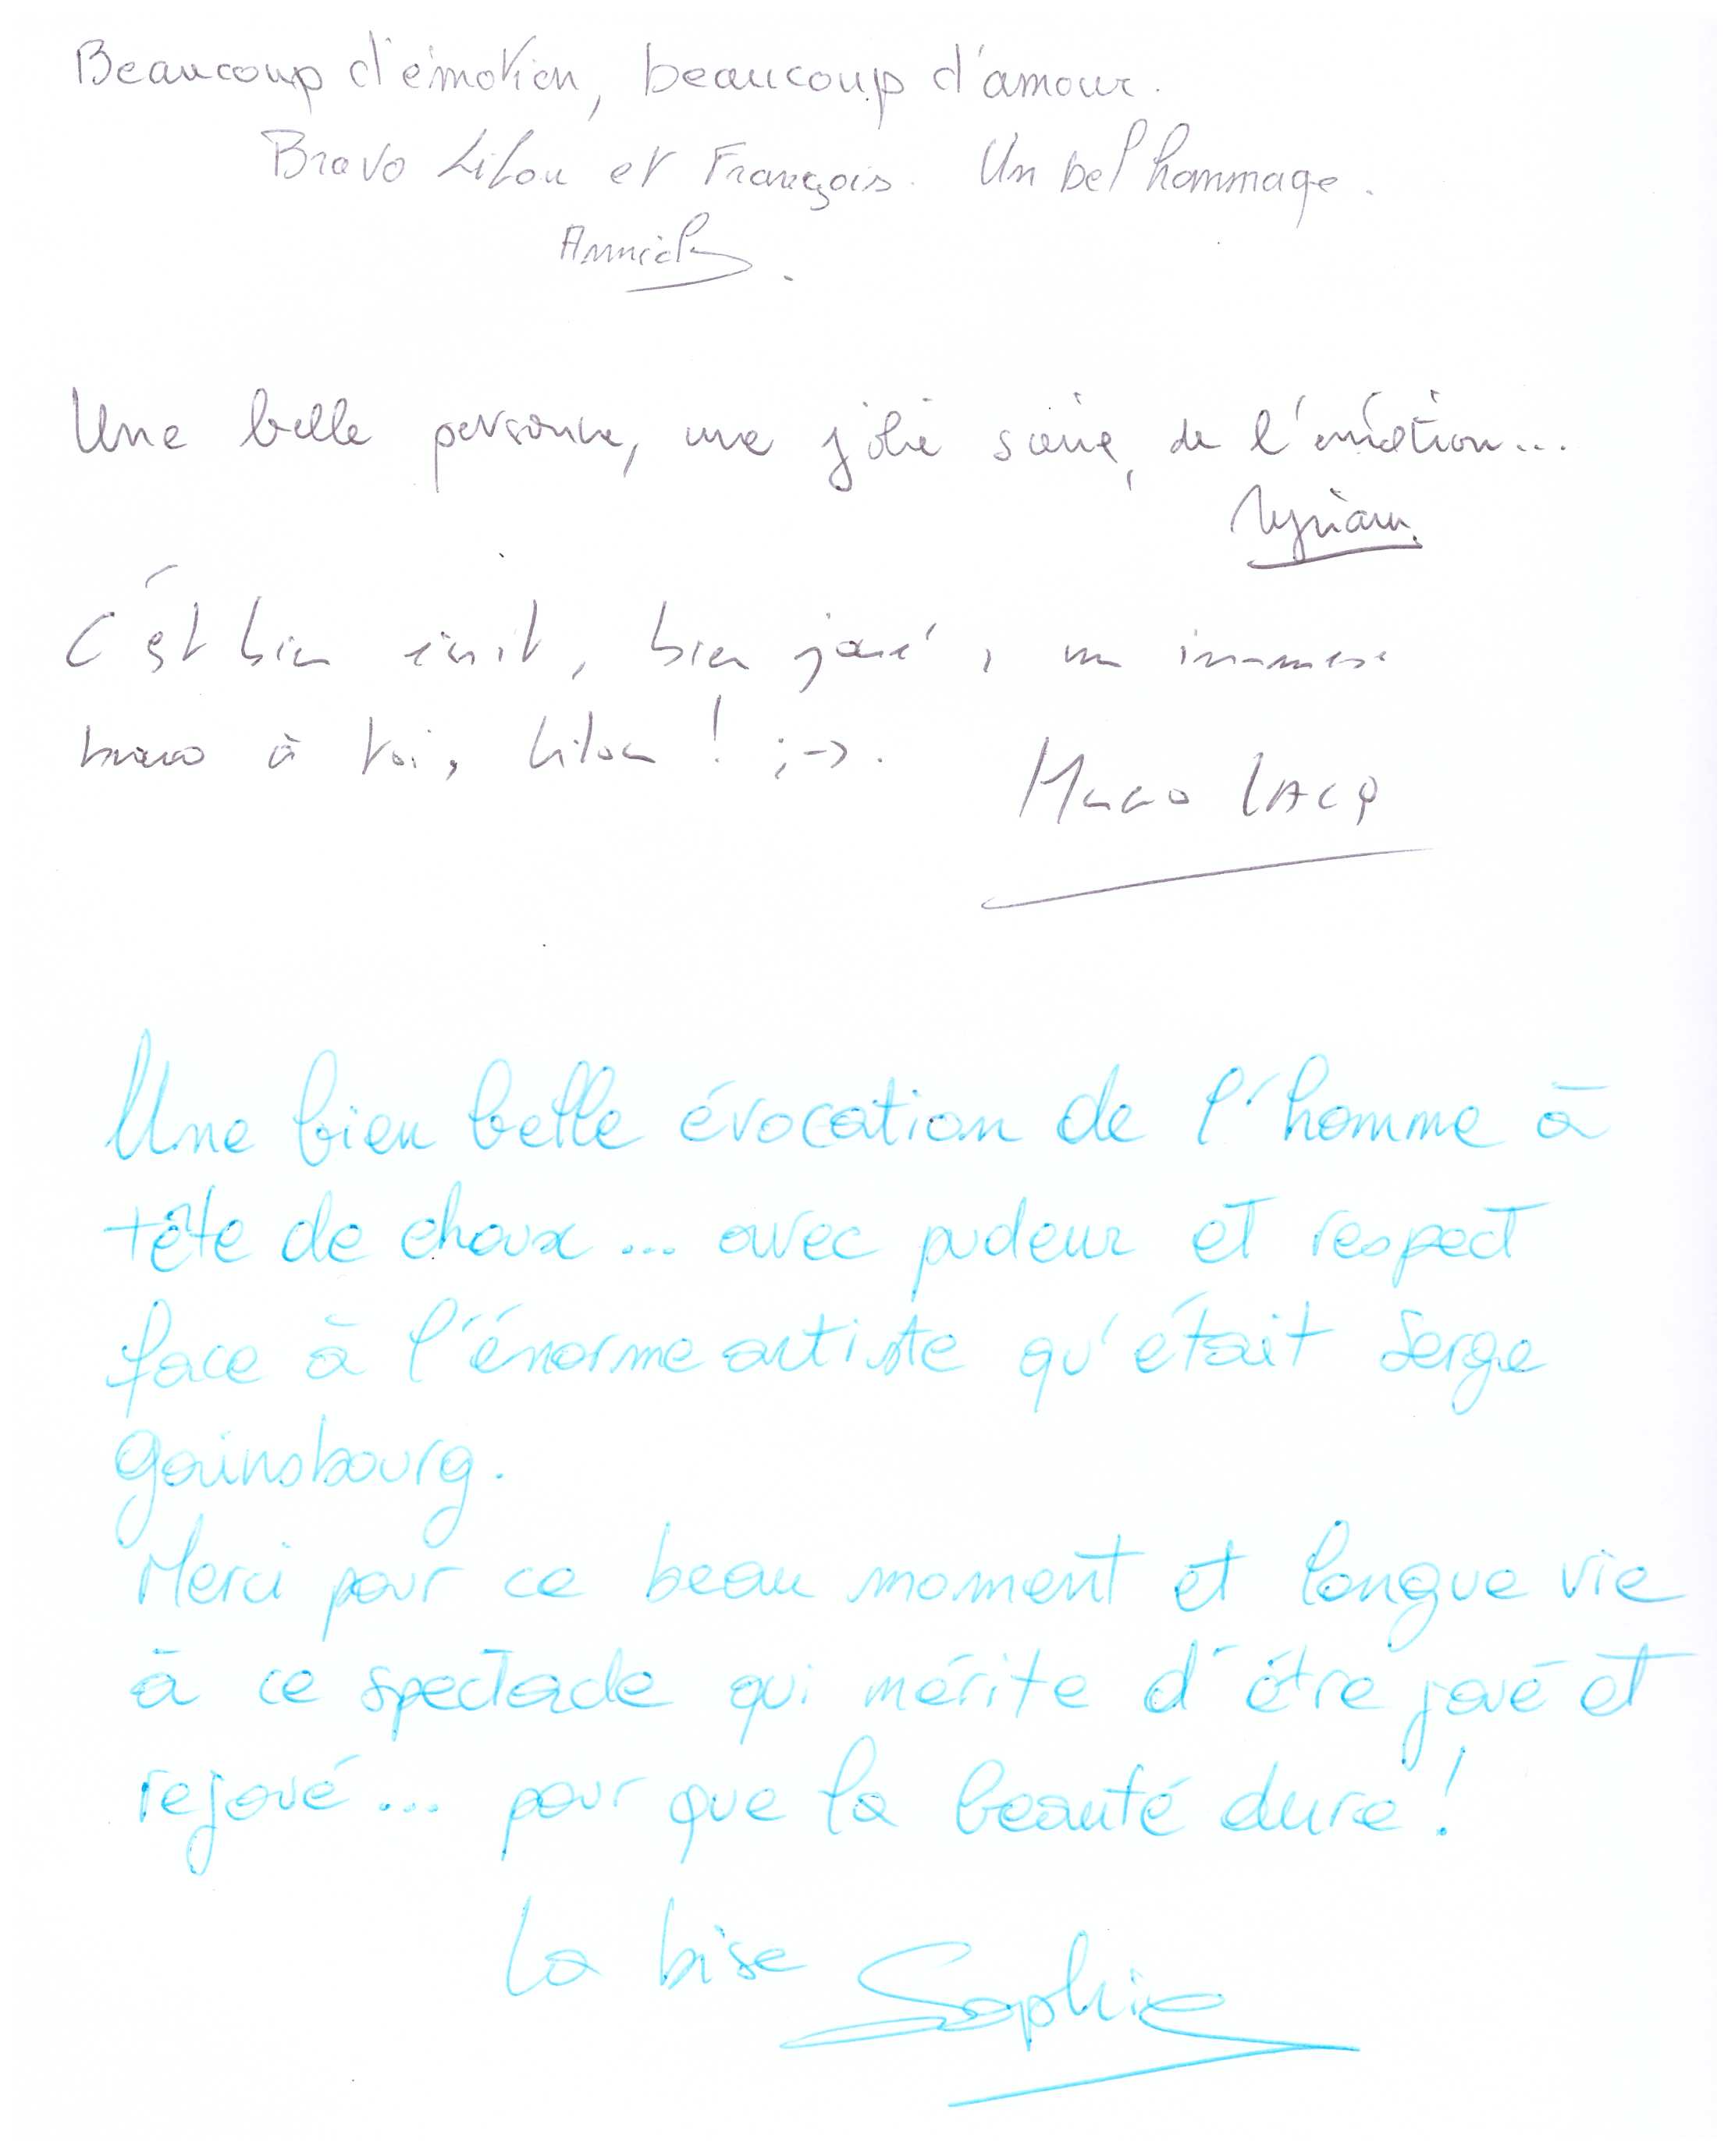 Beaucoup d'émotion, beaucoup d'amour.
Bravo Lilou et François. Un bel hommage.
Annick
Une belle personne, une jolie soirée, de l'émotion...
Myriam
C'est bien écrit, bien joué, un immense
bravo à toi, Lilou ! ;->.
Hugo
Une bien belle évocation de l'homme à
tête de choux... avec pudeur et respect
face à l'énorme artiste qu'était Serge
Gainsbourg.
Merci pour ce beau moment et longue vie
à ce spectacle qui mérite d'être joué et
rejoué... pour que la beauté dure !
La bise Sophie